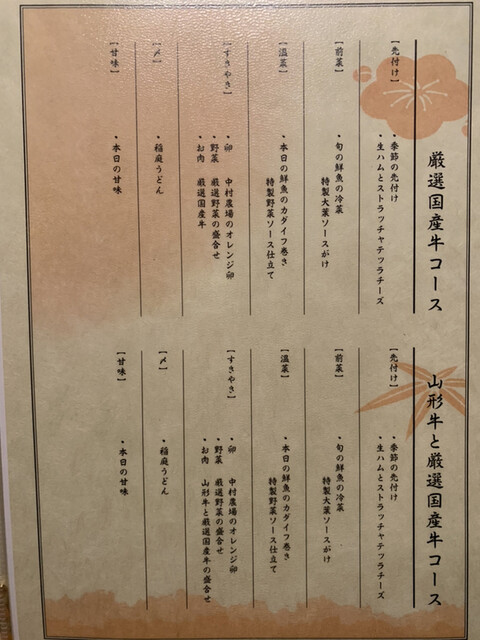 厳選国産牛コース
【先付け】
・季節の先付け
・生ハムとストラッチャテッラチーズ
【前菜】
・旬の鮮魚の冷菜
特製大葉ソースがけ
【温菜】
・本日の鮮魚のカダイフ巻き
特製野菜ソース仕立て
【すきやき】
・卵 中村農場のオレンジ卵
・野菜 厳選野菜の盛合せ
・お肉 厳選国産牛
【〆】
・稲庭うどん
【甘味】
・本日の甘味
山形牛と厳選国産牛コース
【先付け】
・季節の先付け
・生ハムとストラッチャテッラチーズ
【前菜】
・旬の鮮魚の冷菜
特製大葉ソースがけ
【温菜】
・本日の鮮魚のカダイフ巻き
特製野菜ソース仕立て
【すきやき】
・卵 中村農場のオレンジ卵
・野菜 厳選野菜の盛合せ
・お肉 山形牛と厳選国産牛の盛合せ
【〆】
・稲庭うどん
【甘味】
・本日の甘味